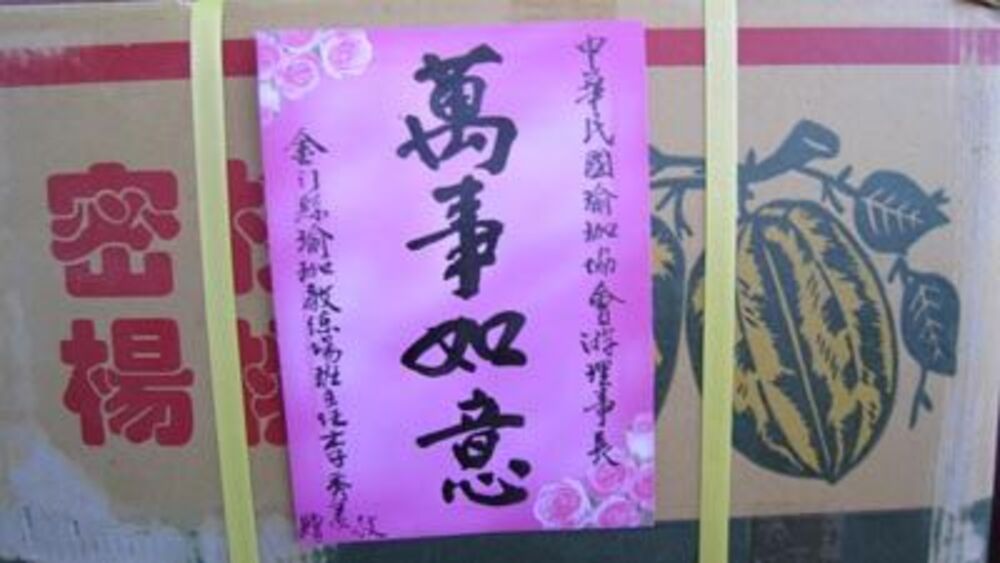 中華民國瑜珈協會游理事長
萬事如意
金门縣瑜珈教練場班主任
敬
贈
密
楊